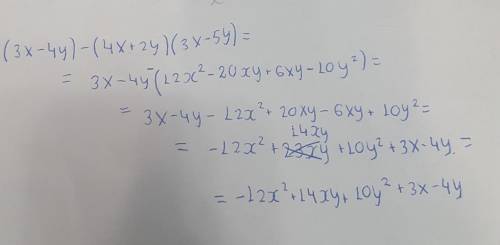 (3x-4y)-(4x+2y)(3x-5y)=
= 3x-4y-(12x²-20xy+6xy-10y²)=
= 3x-4y-12x²+20xy-6xy+10y²=
14xy
= -12x²+23xy+10y²+3x-4y. =
= -12x²+14xy+10y²+3x-4y